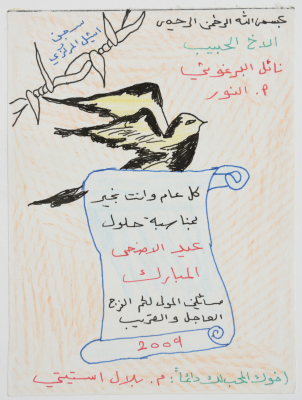 بسم الله الرحمن الرحيم
سجن
الأخ الحبيب
نائل البرغوثي
م. النور
كل عام وانت بخير
بمناسبة حلول
عيد الاضحى
المبارك
لكم الفرج
العاجل والقريب
2009
اخوك المحب لك دائماً: م. بلال استيتي